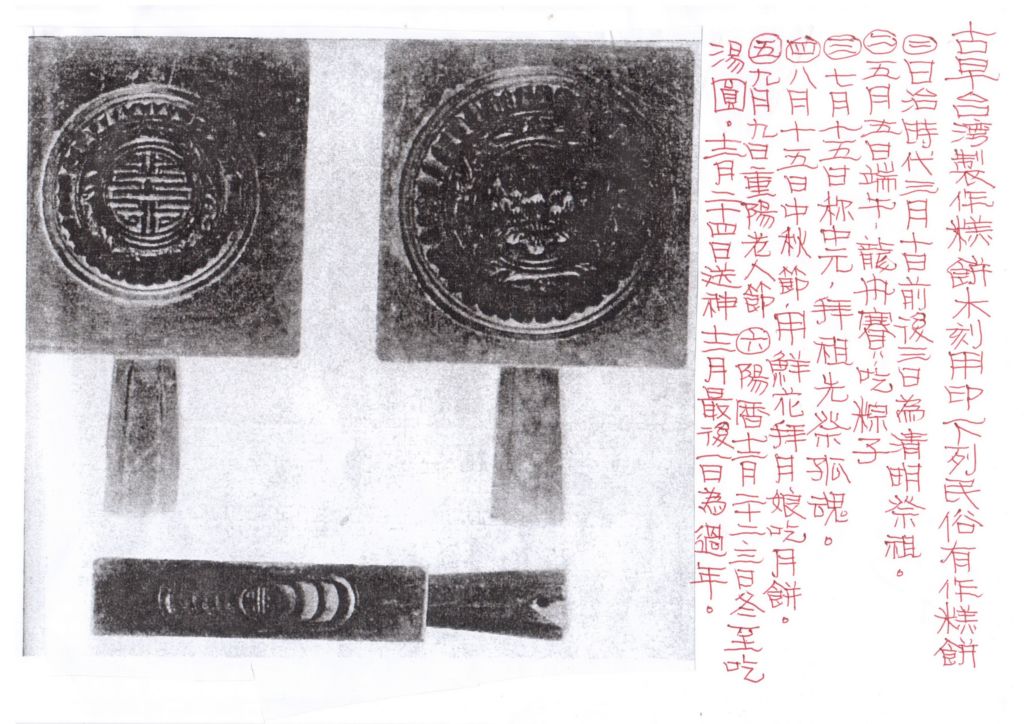 古早台湾製作糕餅木刻用印下列民俗有作糕餅
㊀日治時代三月十日前後三日為清明祭祖。
㊁五月五日端午,龍舟賽"吃粽子
㊂七月十五日称中元,拜祖先祭孤魂。
㊃八月十五日中秋節,用鮮花拜月娘吃月餅。
㊄九月九日重陽老人節㊅陽暦十二月二十二.三日冬至吃
湯圓。十二月二十四日送神十二月最後一日為過年。